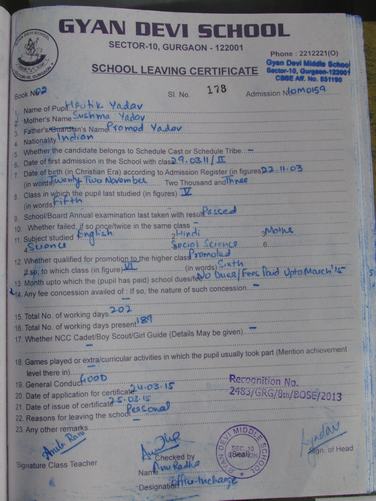 GYAN DEVI SCHOOL
SECTOR-10, GURGAON - 122001
Phone : 2212221(O)
Gyan Devi Middle School
Sector-10, Gurgaon-122001
CBSE Aff. No. 531190
SCHOOL LEAVING CERTIFICATE
Book No 02 Sl. No. 178 Admission No 10M0159
1. Name of Pupil Hritik Yadav
2. Mother's Name Sushma Yadav
3. Father's/Guardian's Name Pramod Yadav
4. Nationality Indian
5. Whether the candidate belongs to Schedule Cast or Schedule Tribe -
6. Date of first admission in the School with class 29.03.11 / II
7. Date of birth (in Christian Era) according to Admission Register (in figures) 22.11.03
(in words) Twenty Two November Two Thousand and Three
8. Class in which the pupil last studied (in figures) V
(in words) Fifth
9. School/Board Annual examination last taken with result Passed
10. Whether failed, if so once/twice in the same class -
11. Subject studied 1 English 2 Hindi 3 Maths
4 Science 5 Social Science 6
12. Whether qualified for promotion to the higher class Promoted
if so, to which class (in figure) VI (in words) Sixth
13. Month upto which the (pupil has paid) school dues/fee No Dues/Fees Paid Upto March '15
14. Any fee concession availed of : If so, the nature of such concession -
15. Total No. of working days 202
16. Total No. of working days present 189
17. Whether NCC Cadet/Boy Scout/Girl Guide (Details May be given) -
18. Games played or extra/curricular activities in which the pupil usually took part (Mention achievement
level there in) -
19. General Conduct GOOD
20. Date of application for certificate 24.03.15
21. Date of issue of certificate 25.03.15
22. Reasons for leaving the school Personal
23. Any other remarks
Recognition No.
2483/GRG/8th/BOSE/2013
Signature Class Teacher
Checked by
Name Anuradha
Designation Office-Incharge
(Seal)
Sign. of Head